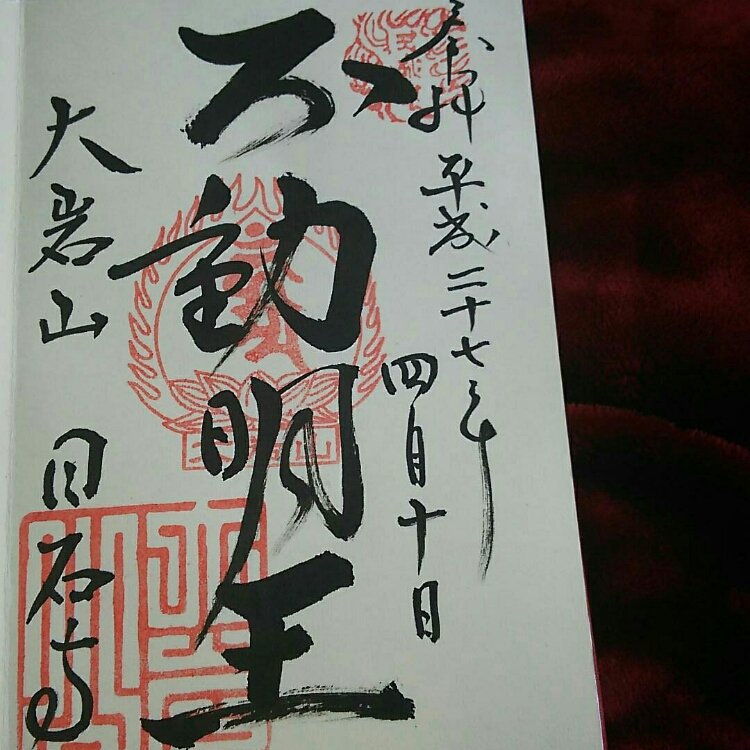 奉拝
平成二十七年
四月十日
不動明王
大岩山
日石寺